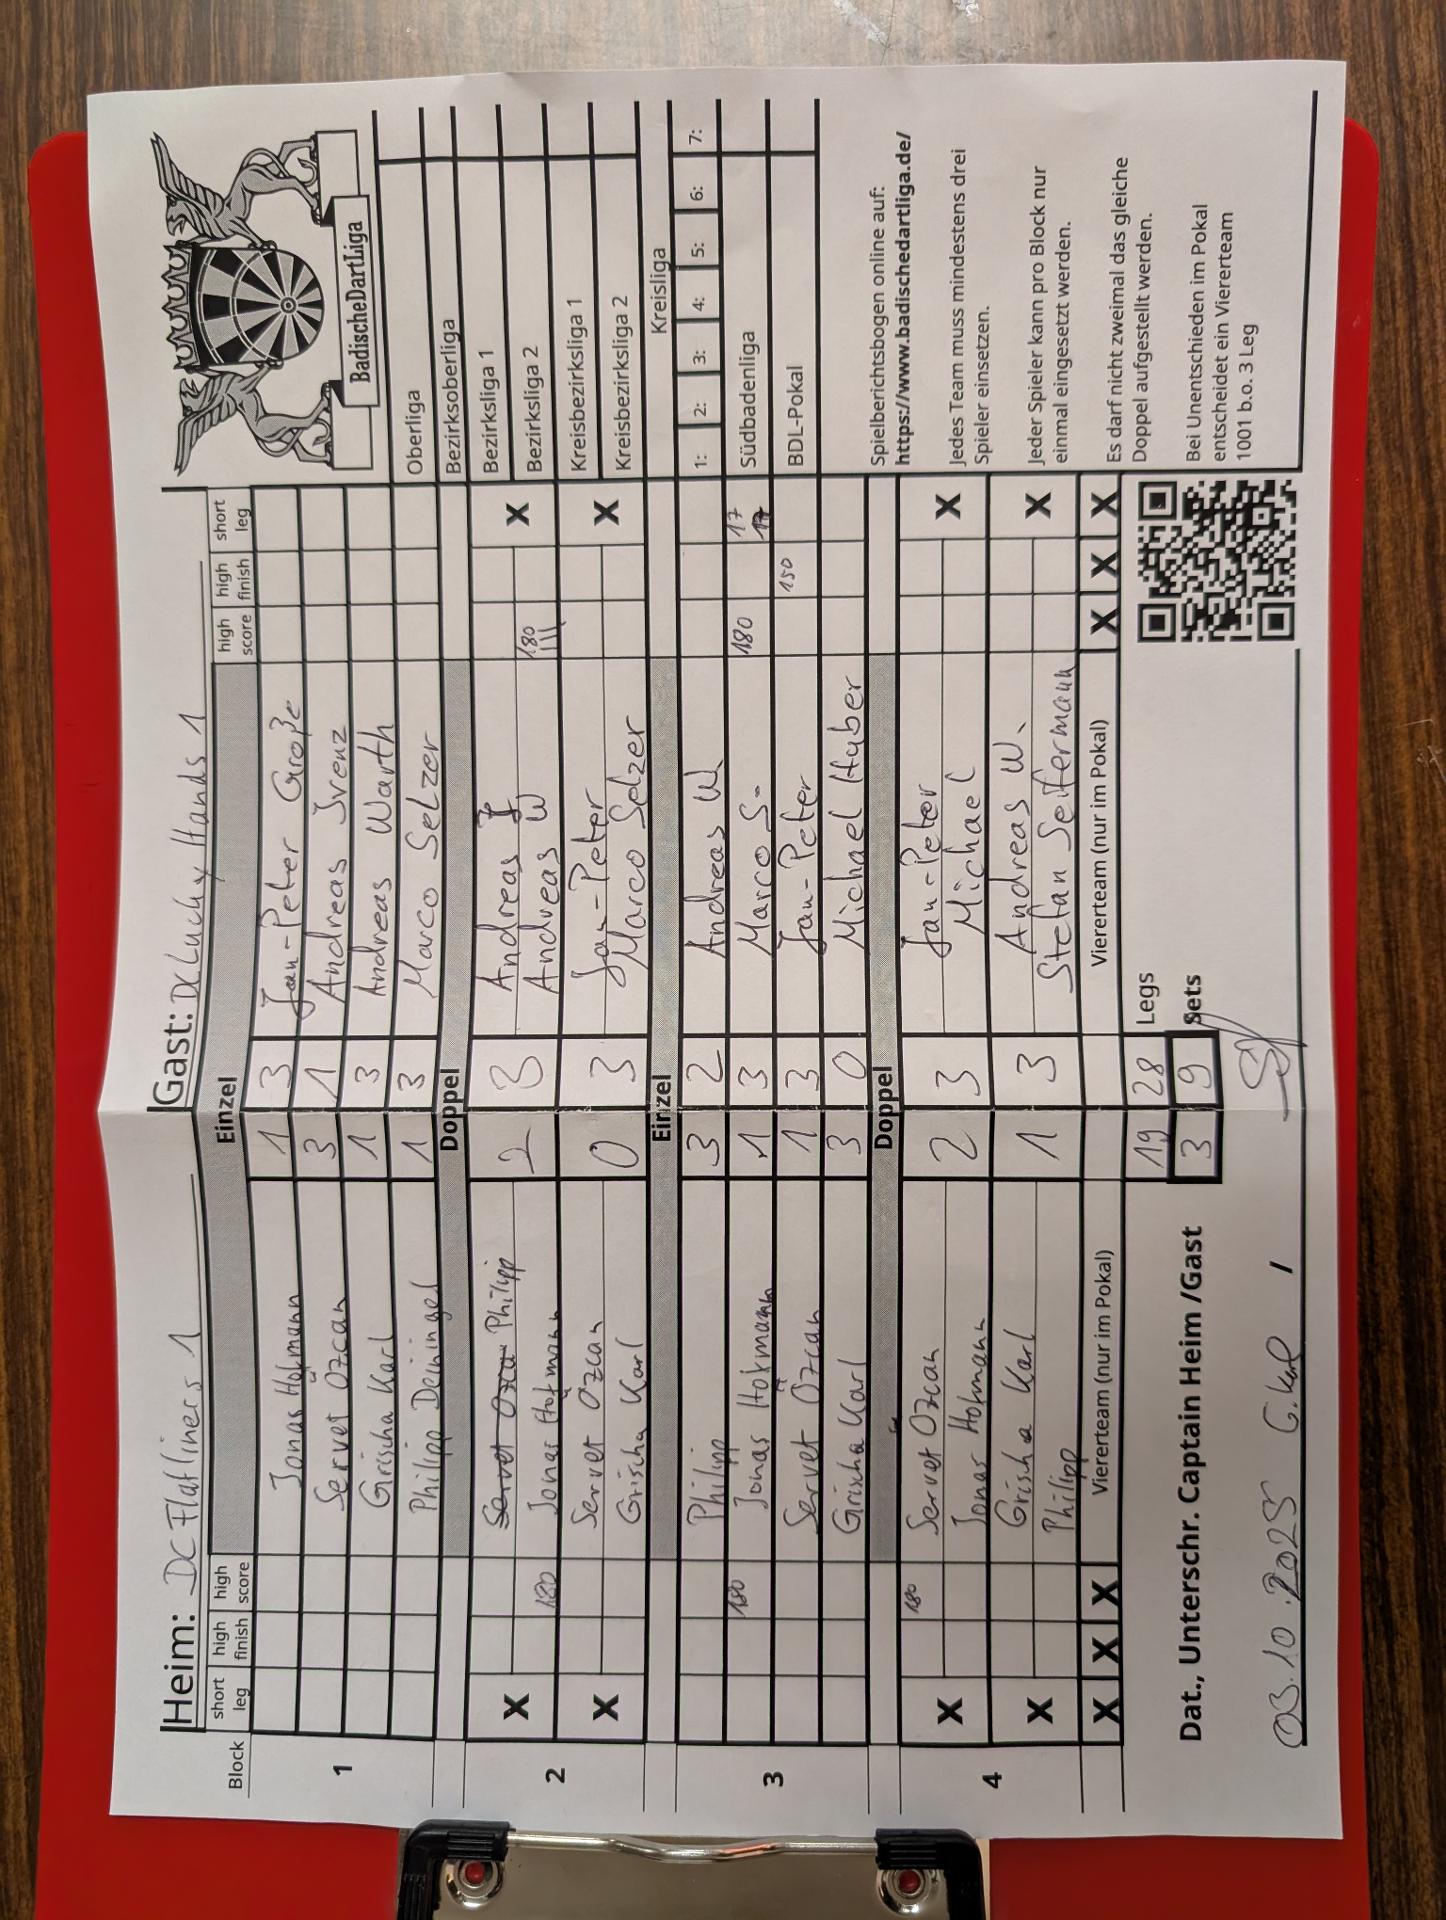 Heim: DC Flatliners 1 Gast: DC Lucky Hands 1
Block short leg high finish high score Einzel high score high finish short leg
BadischeDartLiga
1
Jonas Hofmann 1 3 Jan-Peter Große
Servet Özcan 3 1 Andreas Irenz
Grischa Karl 1 3 Andreas Warth
Philipp Deininger 1 3 Marco Selzer
Doppel
2
X Servet Ozca Philipp 2 3 Andreas I X
180 Jonas Hofmann Andreas W 180 III
X Servet Özcan 0 3 Jan-Peter X
Grischa Karl Marco Selzer
Einzel
3
Philipp 3 2 Andreas W
180 Jonas Hofmann 1 3 Marco S. 180 17 17
Servet Özcan 1 3 Jan-Peter 150
Grischa Karl 3 0 Michael Huber
Doppel
4
X 180 Servet Ozcan 2 3 Jan-Peter X
Jonas Hofmann Michael
X Grischa Karl 1 3 Andreas W. X
Philipp Stefan Seifermann
X X X Viererteam (nur im Pokal) Viererteam (nur im Pokal) X X X
19 28 Legs
3 9 Sets
Dat., Unterschr. Captain Heim /Gast
03.10.2025 G. Karl /
Oberliga
Bezirksoberliga
Bezirksliga 1
Bezirksliga 2
Kreisbezirksliga 1
Kreisbezirksliga 2
Kreisliga
1: 2: 3: 4: 5: 6: 7:
Südbadenliga
BDL-Pokal
Spielberichtsbogen online auf:
https://www.badischedartliga.de/
Jedes Team muss mindestens drei
Spieler einsetzen.
Jeder Spieler kann pro Block nur
einmal eingesetzt werden.
Es darf nicht zweimal das gleiche
Doppel aufgestellt werden.
Bei Unentschieden im Pokal
entscheidet ein Viererteam
1001 b.o. 3 Leg